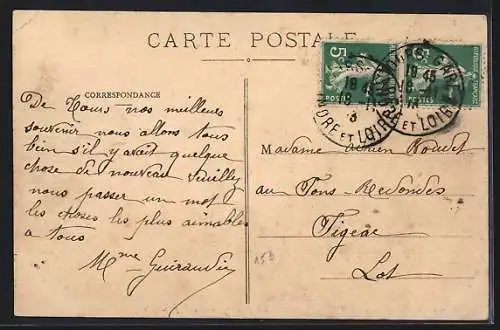 CARTE POSTALE
CORRESPONDANCE
De Tours nos meilleurs
souvenir nous allons tous
bien s'il y avait quelque
chose de nouveau veuillez
nous passer un mot
les choses les plus aimables
a tous
Mme Guéraudie
5
POSTES
5
POSTES
18 45
INDRE ET LOIRE
18 45
ET LOIRE
Madame Roudet
au Fons-Redondes
Figeac
Lot
15D